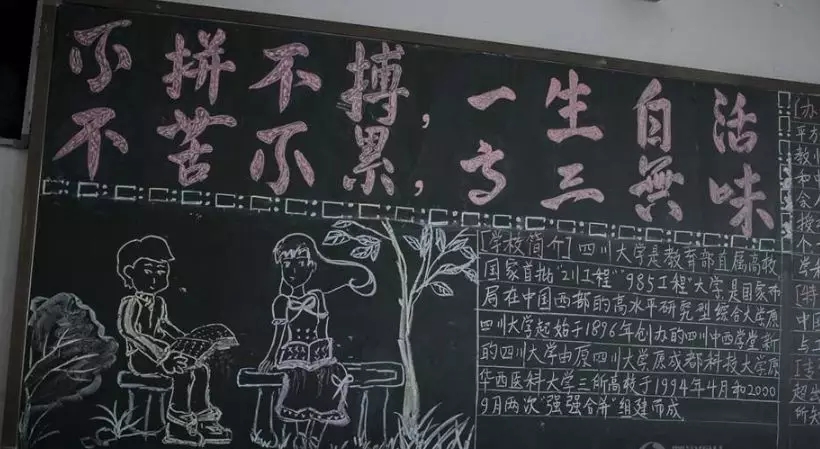 不拼不搏,一生自活
不苦不累,高三無味
[学校简介]四川大学是教育部直属高校
国家首批"211工程""985工程"大学是国家布
局在中国西部的高水平研究型综合大学原
四川大学起始于1896年创办的四川中西学堂新
的四川大学由原四川大学原成都科技大学原
华西医科大学三所高校于1994年4月和2000
9月两次"强强合并"组建而成
[办
平方
教
和中
会
授
个
学
[特
中国
与
超出
所知